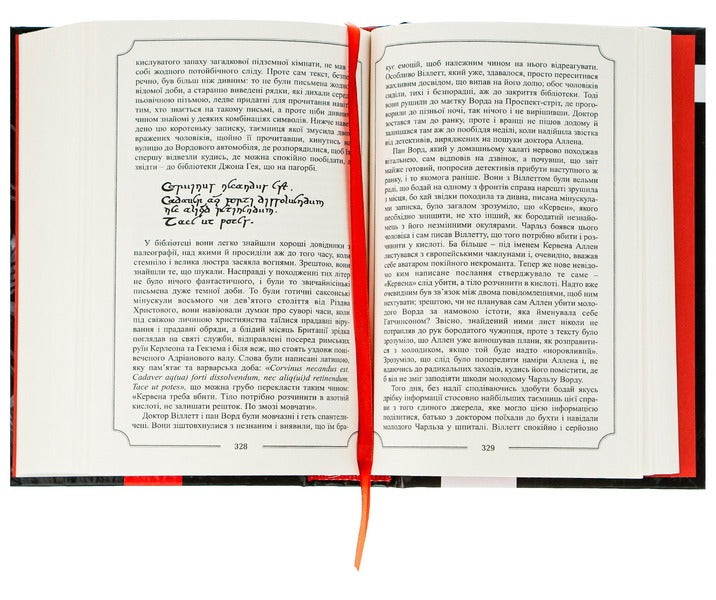 кислуватого запаху загадкової підземної кімнати, не мав
собі жодного потойбічного сліду. Проте сам текст, безпе-
речно, був більш ніж дивним: то не були письмена жодної
відомої доби, а старанно виведені рядки, які дихали серед-
ньовічною пітьмою, ледве придатні для прочитання навіть
тим, хто знається на такому письмі, а проте ніби дивним
чином знайомі у деяких комбінаціях символів. Нижче наве-
дено цю коротеньку записку, таємниця якої змусила двох
вражених чоловіків, щойно її прочитавши, кинутись на
вулицю до Вордового автомобіля, де розпорядилися, щоб їх
спершу відвезли кудись, де можна спокійно пообідати, а
звідти – до бібліотеки Джона Гея, що на пагорбі.
Corvinus necandus est.
Cadaver aq forti dissolvendum
nec aliqd retinendum.
Tace ut potes.
У бібліотеці вони легко знайшли хороші довідники з
палеографії, над якими й просиділи аж до того часу, коли
стемніло і велика люстра засяяла вогнями. Зрештою, вони
знайшли те, що шукали. Насправді у походженні тих літер
не було нічого фантастичного, і були то звичайнісінькі
письмена дуже темної доби. То були готичні саксонські
мінускули восьмого чи дев'ятого століття від Різдва
Христового, вони навіювали думки про суворі часи, коли
під свіжою личиною християнства таїлися прадавні віру-
вання і прадавні обряди, а блідий місяць Британії зрідка
поглядав на святі служби, відправлені посеред римських
руїн Керлеона та Гексема і біля веж, що стоять уздовж пони-
веченого Адріанового валу. Слова були написані латиною,
яку пам'ятає та варварська доба: «Corvinus necandus est.
Cadaver aq(ua) forti dissolvendum, nec aliq(ui)d retinendum.
Tace ut potes», що можна грубо перекласти таким чином:
«Кервена треба вбити. Тіло потрібно розчинити в азотній
кислоті, не залишати решток. По змозі мовчати».
Доктор Віллетт і пан Ворд були мовчазні і геть спантели-
чені. Вони зіштовхнулися з незнаним і виявили, що їм бра-
328
кує емоцій, щоб належним чином на нього відреагувати.
Особливо Віллетт, який уже, здавалося, просто переситився
жахливим досвідом, що випав на його долю; обоє чоловіків
сиділи, тихі і безпорадні, аж до закриття бібліотеки. Тоді
вони рушили до маєтку Ворда на Проспект-стріт, де прого-
ворили до пізньої ночі, так нічого і не вирішивши. Доктор
зостався там до ранку, проте і вранці не пішов додому й
залишався там аж до пообіддя неділі, коли надійшла звістка
від детективів, виряджених на пошуки доктора Аллена.
Пан Ворд, який у домашньому халаті нервово походжав
вітальнею, сам відповів на дзвінок, а почувши, що звіт
майже готовий, попросив детективів прибути наступного ж
ранку, і то якомога раніше. Вони з Віллеттом були вельми
раді, що бодай на одному з фронтів справа нарешті зрушила
з місця, бо хай звідки походила та дивна, писана мінускула-
ми записка, було загалом зрозуміло, що «Кервен», якого
необхідно знищити, не хто інший, як бородатий незнайо-
мець з його незмінними окулярами. Чарльз боявся цього
чоловіка і сам писав Віллетту, що того потрібно вбити і роз-
чинити у кислоті. Ба більше – під іменем Кервена Аллен
листувався з європейськими чаклунами і, очевидно, вважав
себе аватаром покійного некроманта. Тепер же нове невідо-
мо ким написане послання стверджувало те саме –
«Кервена» слід убити, а тіло розчинити в кислоті. Надто вже
очевидним був зв'язок між двома повідомленнями, щоб ним
нехтувати; зрештою, чи не планував сам Аллен убити моло-
дого Ворда за намовою істоти, яка йменувала себе
Гатчинсоном? Звісно, знайдений ними лист ніколи не
потрапляв до рук бородатого чужинця, проте з тексту було
зрозуміло, що Аллен уже виношував плани, як розправити-
ся з молодиком, якщо той буде надто «норовливий».
Зрозуміло, що слід було попередити наміри Аллена і, не
вдаючись до радикальних заходів, кудись його помістити, де
б він не зміг заподіяти шкоди молодому Чарльзу Ворду.
Того дня, без надії сподіваючись здобути бодай якусь
дрібку інформації стосовно найбільших таємниць цієї спра-
ви з того єдиного джерела, яке могло цією інформацією
поділитися, батько з доктором поїхали до бухти і навідали
молодого Чарльза у шпиталі. Віллетт спокійно і серйозно
329